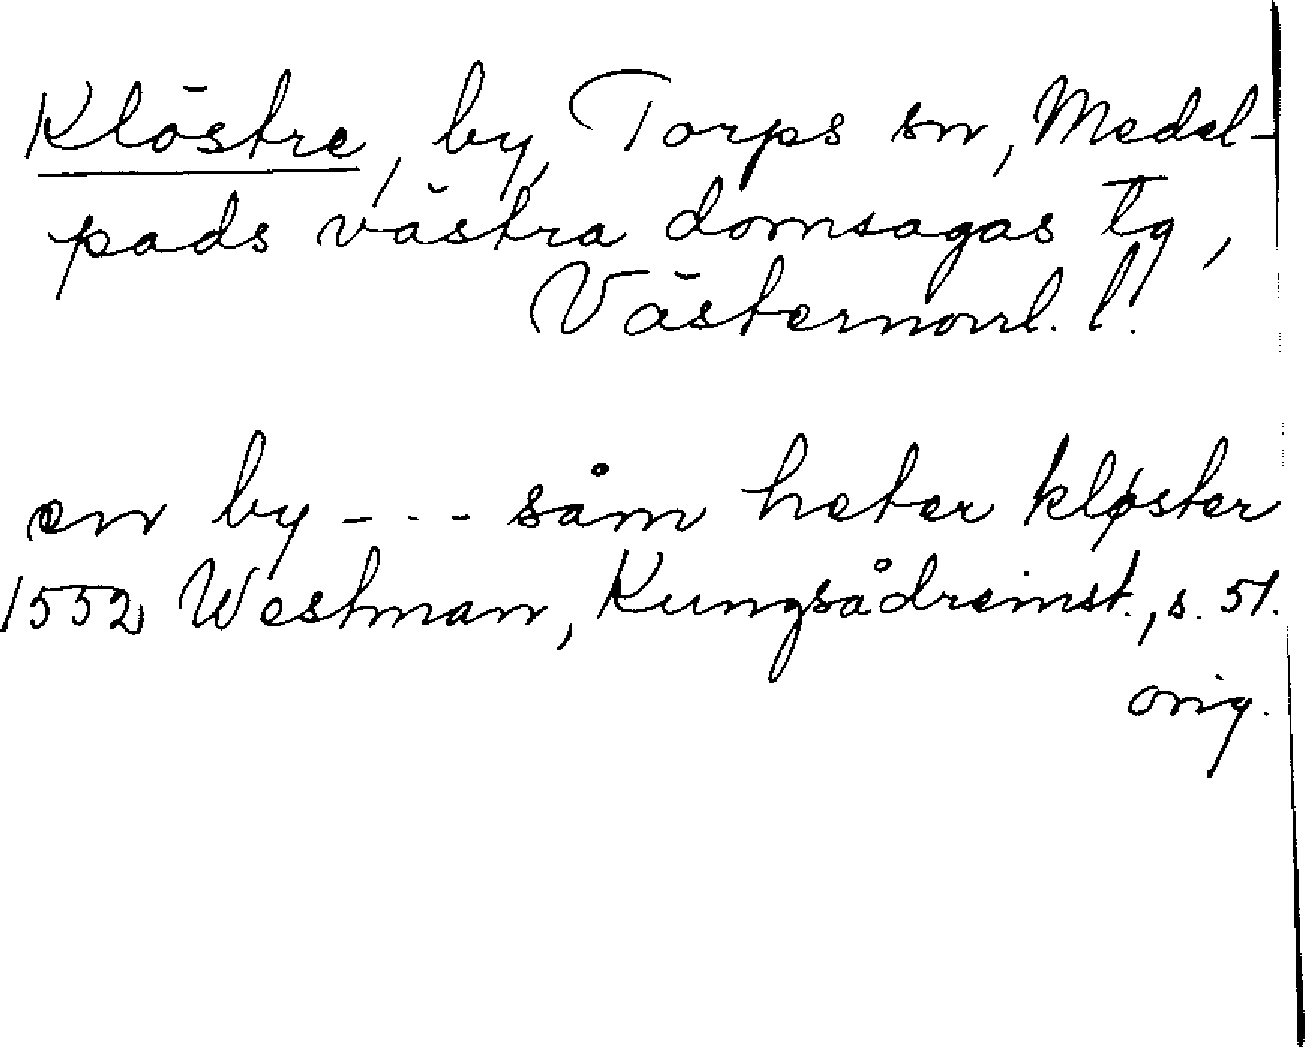 Klöstre, by, Torps sn, Medel-
pads västra domsagas tg,
Västernorrl. l.
en by - . . - såm heter kløster
1552 Westman, Kungsådreinst., s. 51.
orig.